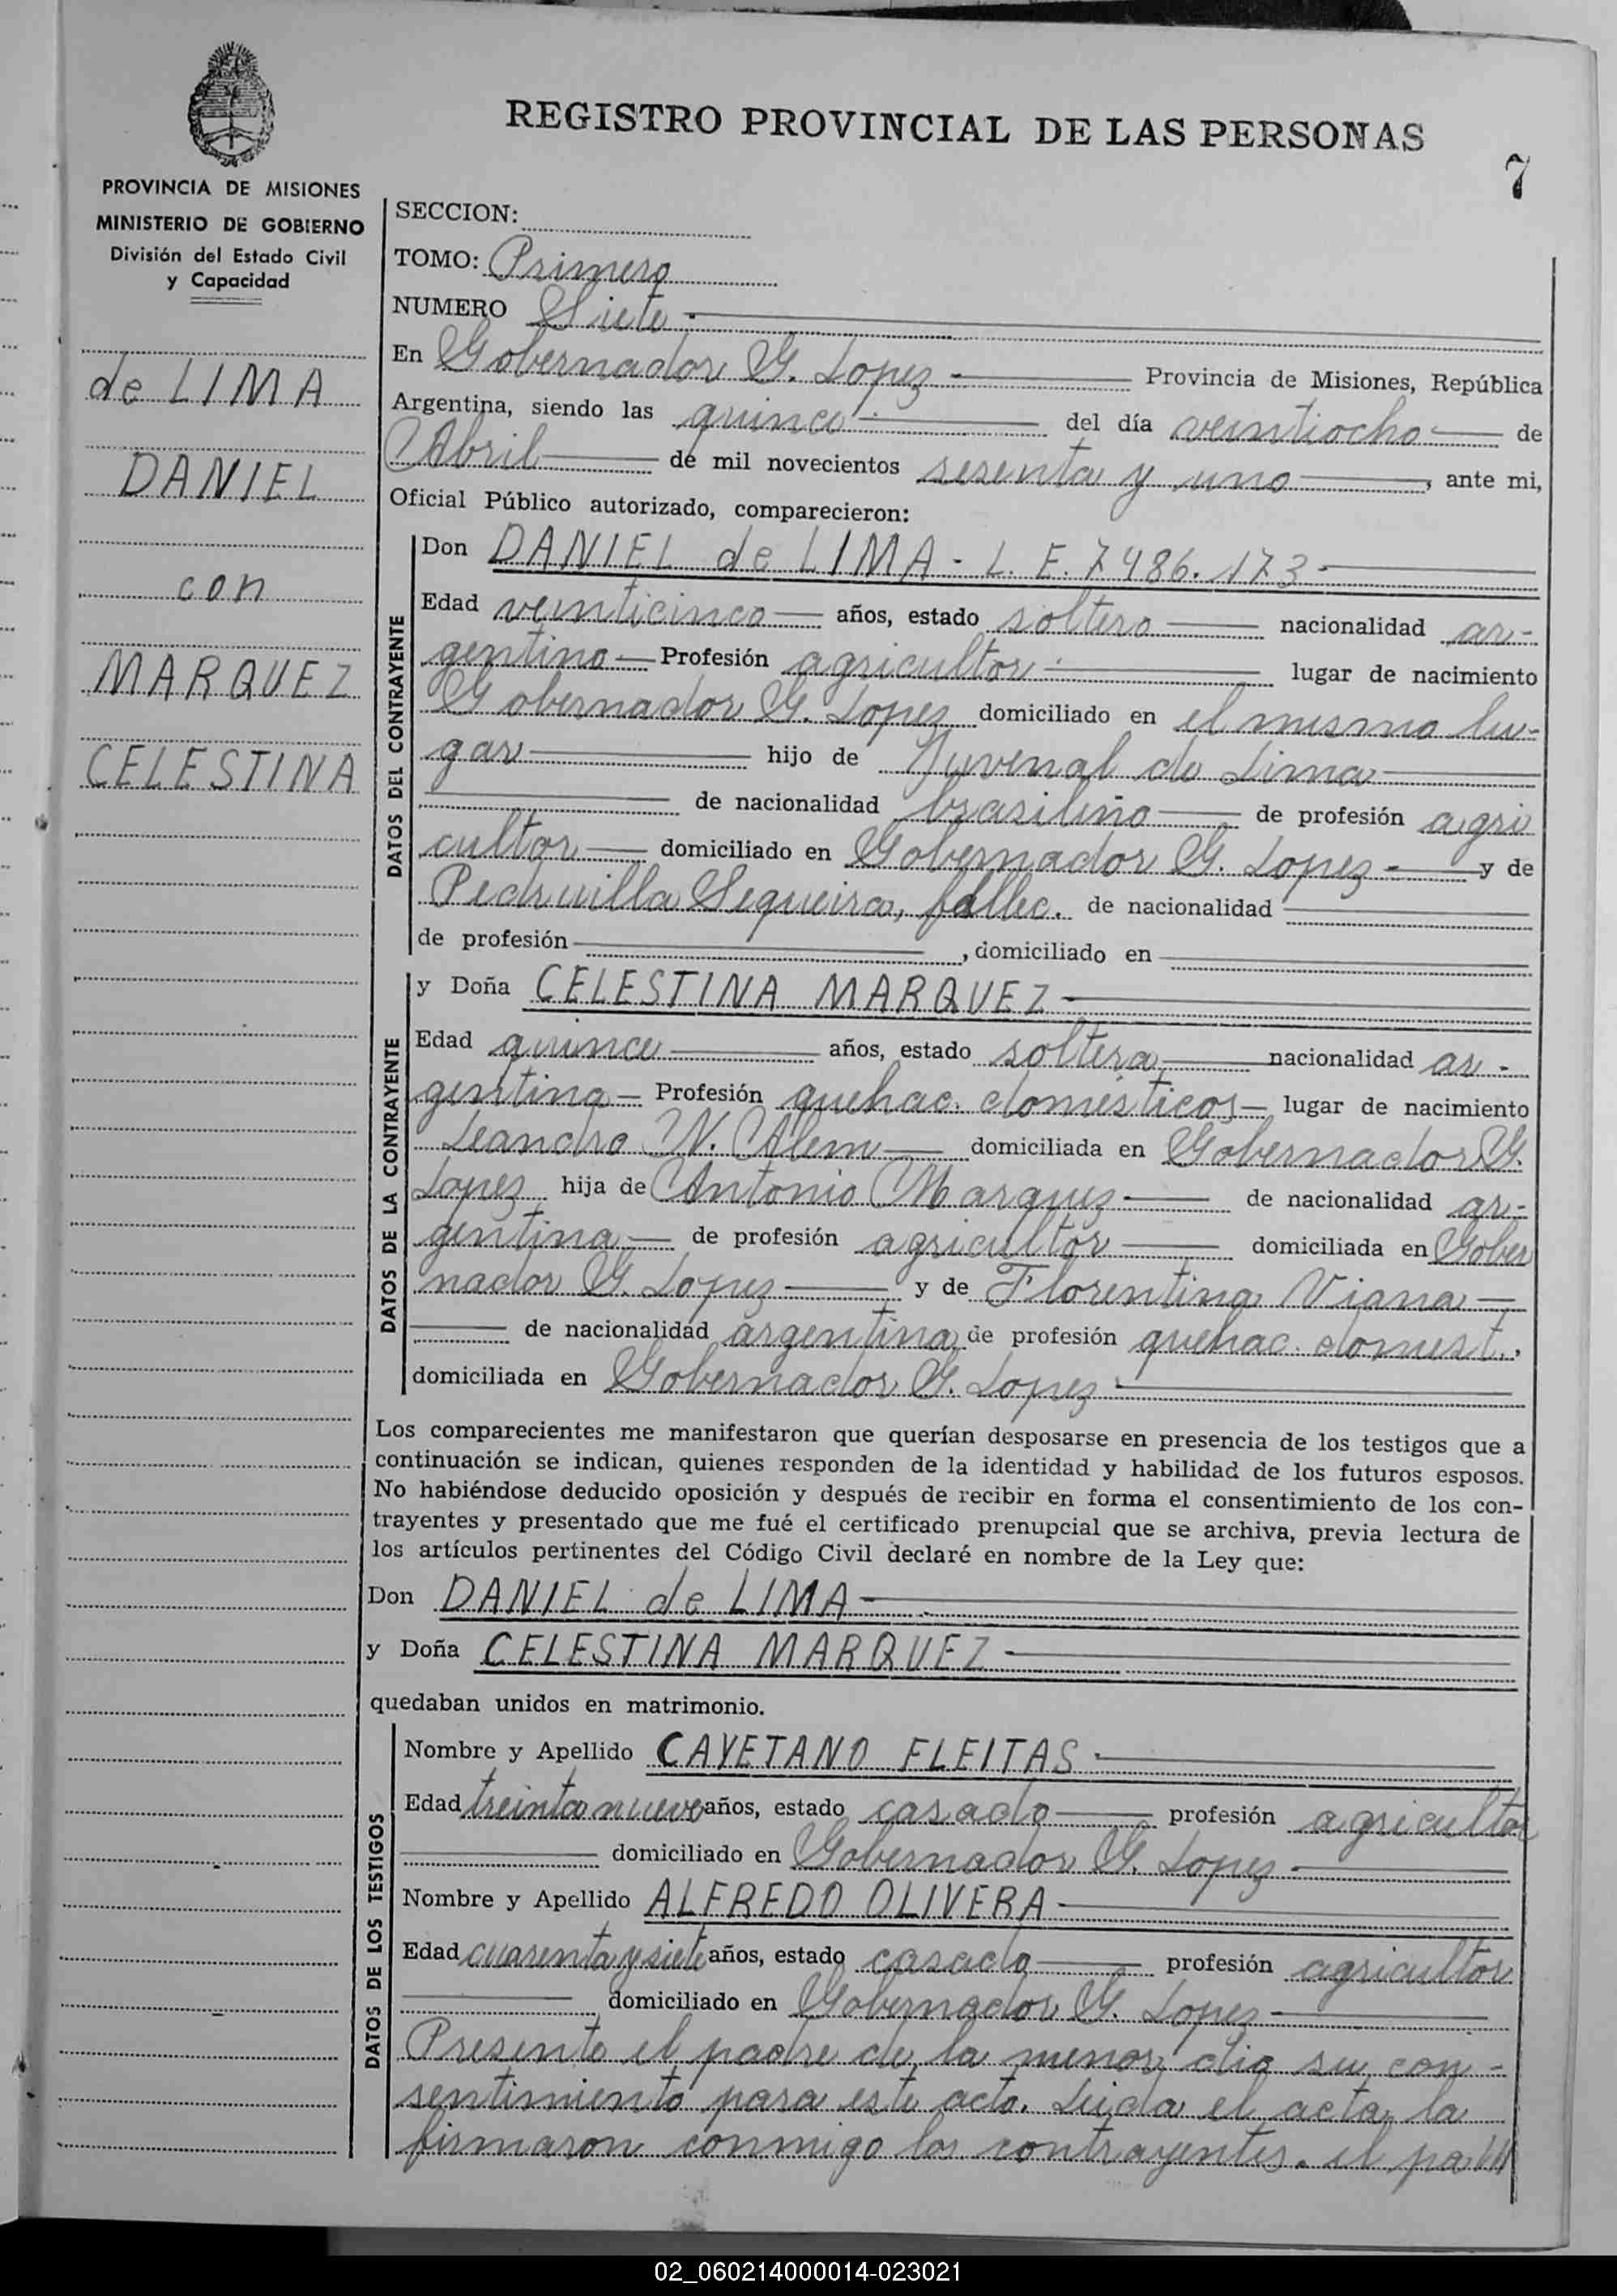 REGISTRO PROVINCIAL DE LAS PERSONAS
7
PROVINCIA DE MISIONES
MINISTERIO DE GOBIERNO
División del Estado Civil
y Capacidad
de LIMA
DANIEL
con
MARQUEZ
CELESTINA
SECCION:
TOMO: Primero
NUMERO Siete
En Gobernador G. Lopez Provincia de Misiones, República
Argentina, siendo las quince del día veintiocho de
Abril de mil novecientos sesenta y uno, ante mi,
Oficial Público autorizado, comparecieron:
DATOS DEL CONTRAYENTE
Don DANIEL de LIMA - L. E. 7486.173-
Edad veinticinco años, estado soltero nacionalidad ar-
gentino Profesión agricultor lugar de nacimiento
Gobernador G. Lopez domiciliado en el mismo lu-
gar hijo de Juvenal de Lima
de nacionalidad brasileño de profesión agri
cultor domiciliado en Gobernador G. Lopez y de
Sequeira, fallec. de nacionalidad
de profesión , domiciliado en
DATOS DE LA CONTRAYENTE
y Doña CELESTINA MARQUEZ
Edad quince años, estado soltera nacionalidad ar-
gentina Profesión quehac. domésticos lugar de nacimiento
Leandro N. Alem domiciliada en Gobernador G.
Lopez hija de Antonio Marquez de nacionalidad ar-
gentina de profesión agricultor domiciliada en Gober
nador G. Lopez y de Florentina Viana
de nacionalidad argentina de profesión quehac. domest.,
domiciliada en Gobernador G. Lopez
Los comparecientes me manifestaron que querían desposarse en presencia de los testigos que a
continuación se indican, quienes responden de la identidad y habilidad de los futuros esposos.
No habiéndose deducido oposición y después de recibir en forma el consentimiento de los con-
trayentes y presentado que me fué el certificado prenupcial que se archiva, previa lectura de
los artículos pertinentes del Código Civil declaré en nombre de la Ley que:
Don DANIEL de LIMA
y Doña CELESTINA MARQUEZ
quedaban unidos en matrimonio.
DATOS DE LOS TESTIGOS
Nombre y Apellido CAYETANO FLEITAS
Edad treinta nueve años, estado casado profesión agricultor
domiciliado en Gobernador G. Lopez
Nombre y Apellido ALFREDO OLIVERA
Edad cuarenta y siete años, estado casado profesión agricultor
domiciliado en Gobernador G. Lopez
Presente el padre de la menor, dio su con-
sentimiento para este acto. Leida el acta, la
firmaron conmigo los contrayentes. el pa///
02_060214000014-023021